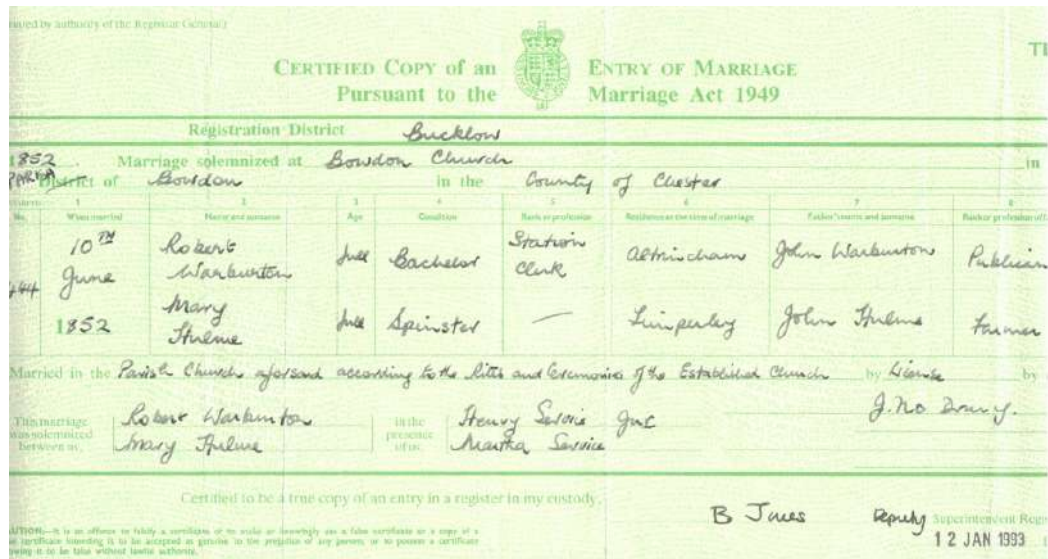 issued by authority of the Registrar General
CERTIFIED COPY of an ENTRY OF MARRIAGE
Pursuant to the Marriage Act 1949
Registration District Bucklow
1852. Marriage solemnized at Bowdon Church in
PARISH District of Bowdon in the County of Chester
1 2 3 4 5 6 7 8
No. When married Name and surname Age Condition Rank or profession Residence at the time of marriage Father's name and surname Rank or profession of
10TH June 1852 Robert Warburton full Bachelor Station Clerk Altrincham John Warburton Publican
Mary Hulme full Spinster — Timperley John Hulme Farmer
Married in the Parish Church aforsaid according to the Rites and Ceremonies of the Established Church by License by
This marriage was solemnized between us, Robert Warburton in the presence of us, Henry Service Jnr J. no
Mary Hulme Martha Service
Certified to be a true copy of an entry in a register in my custody,
B Jones Deputy Superintendent Regis
12 JAN 1993
CAUTION:—It is an offence to falsify a certificate or to make or knowingly use a false certificate or a copy of a
false certificate intending it to be accepted as genuine to the prejudice of any person, or to possess a certificate
knowing it to be false without lawful authority.